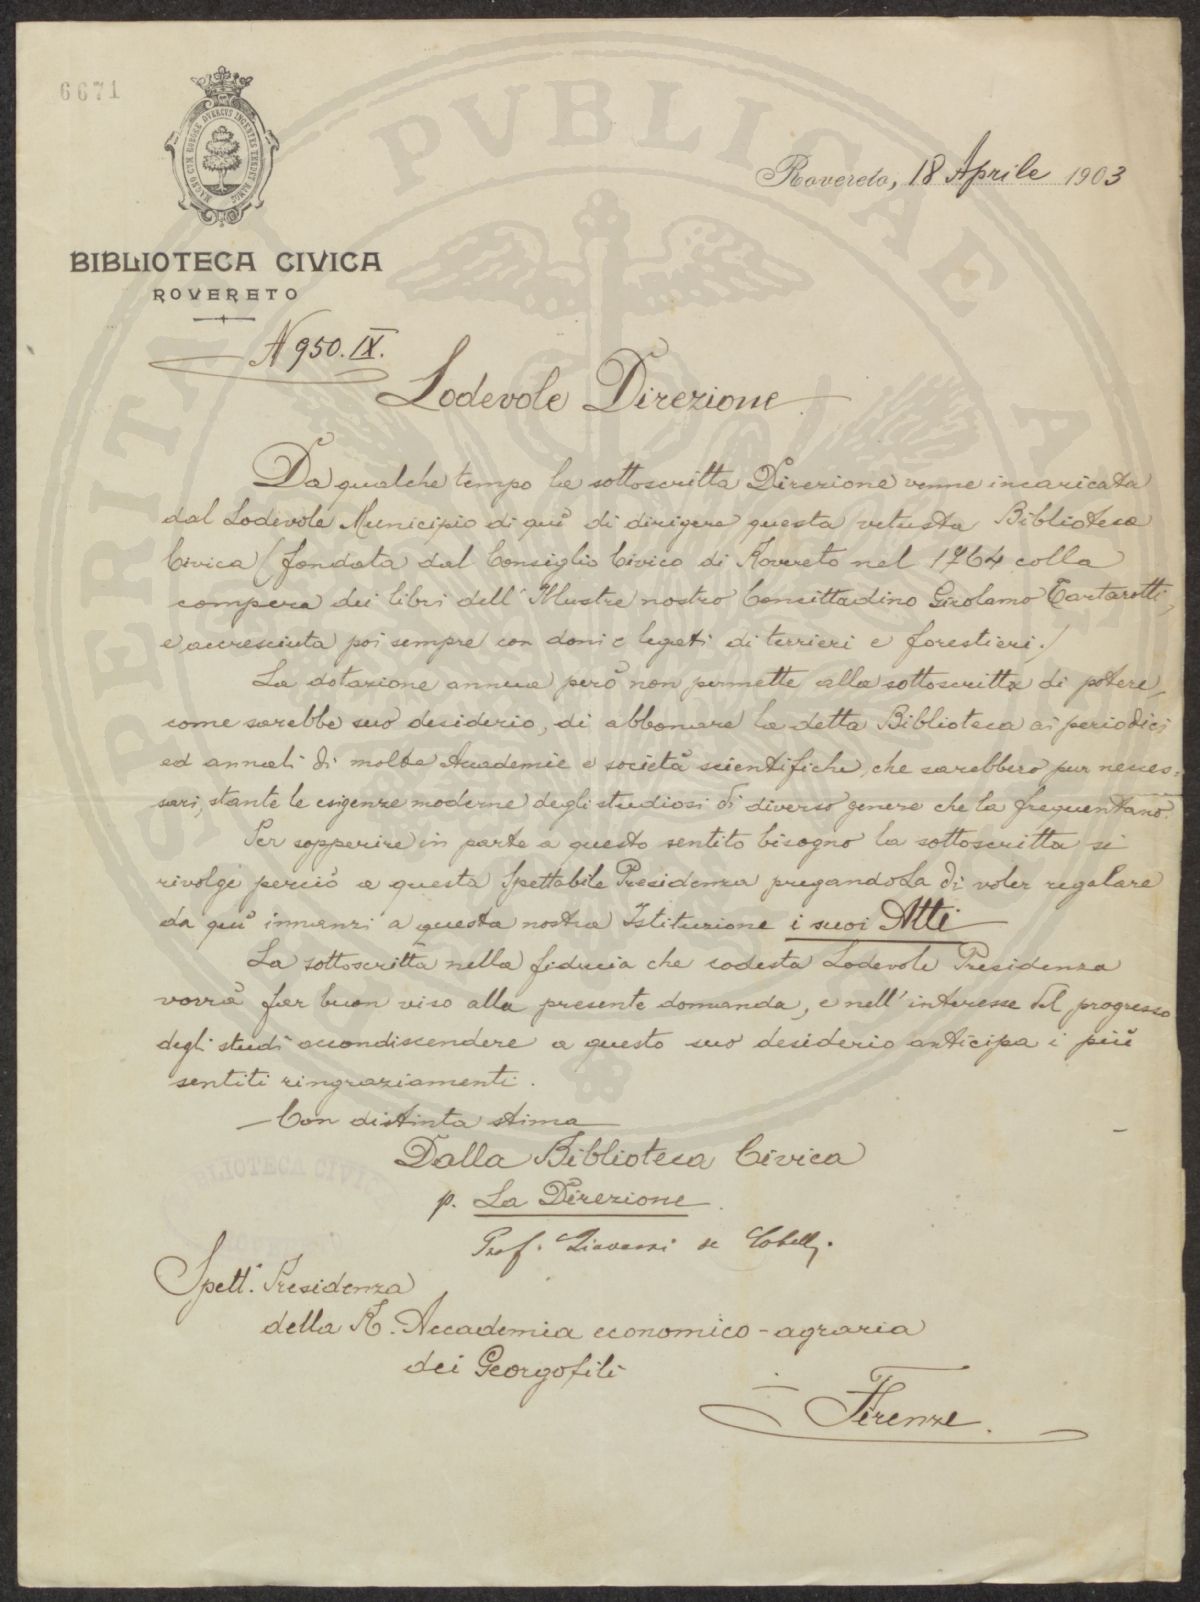 6671
MAGNO CUM ROBORE QUERCUS INGENTES TENDET RAMOS
BIBLIOTECA CIVICA
ROVERETO
Rovereto, 18 Aprile 1903
N 950. IX.
Lodevole Direzione
Da qualche tempo la sottoscritta Direzione venne incaricata
dal Lodevole Municipio di quì di dirigere questa vetusta Biblioteca
Civica (fondata dal Consiglio Civico di Rovereto nel 1764 colla
compera dei libri dell' Illustre nostro Concittadino Girolamo Tartarotti,
e accresciuta poi sempre con doni e legati di terrieri e forestieri.)
La dotazione annua però non permette alla sottoscritta di potere,
come sarebbe suo desiderio, di abbonare la detta Biblioteca ai periodici
ed annali di molte Accademie e società scientifiche, che sarebbero pur neces=
sari, stante le esigenze moderne degli studiosi di diverso genere che la frequentano.
Per sopperire in parte a questo sentito bisogno la sottoscritta si
rivolge perciò a questa Spettabile Presidenza pregandola di voler regalare
da quì innanzi a questa nostra Istituzione i suoi Atti
La sottoscritta nella fiducia che codesta Lodevole Presidenza
vorrà far buon viso alla presente domanda, e nell'interesse del progresso
degli studi accondiscendere a questo suo desiderio anticipa i più
sentiti ringraziamenti.
Con distinta stima
Dalla Biblioteca Civica
p. La Direzione
Prof. Giovanni de Cobelli.
BIBLIOTECA CIVICA
Spett. Presidenza
della R. Accademia economico-agraria
dei Georgofili
Firenze.
PROSPERITATI PUBLICAE AU